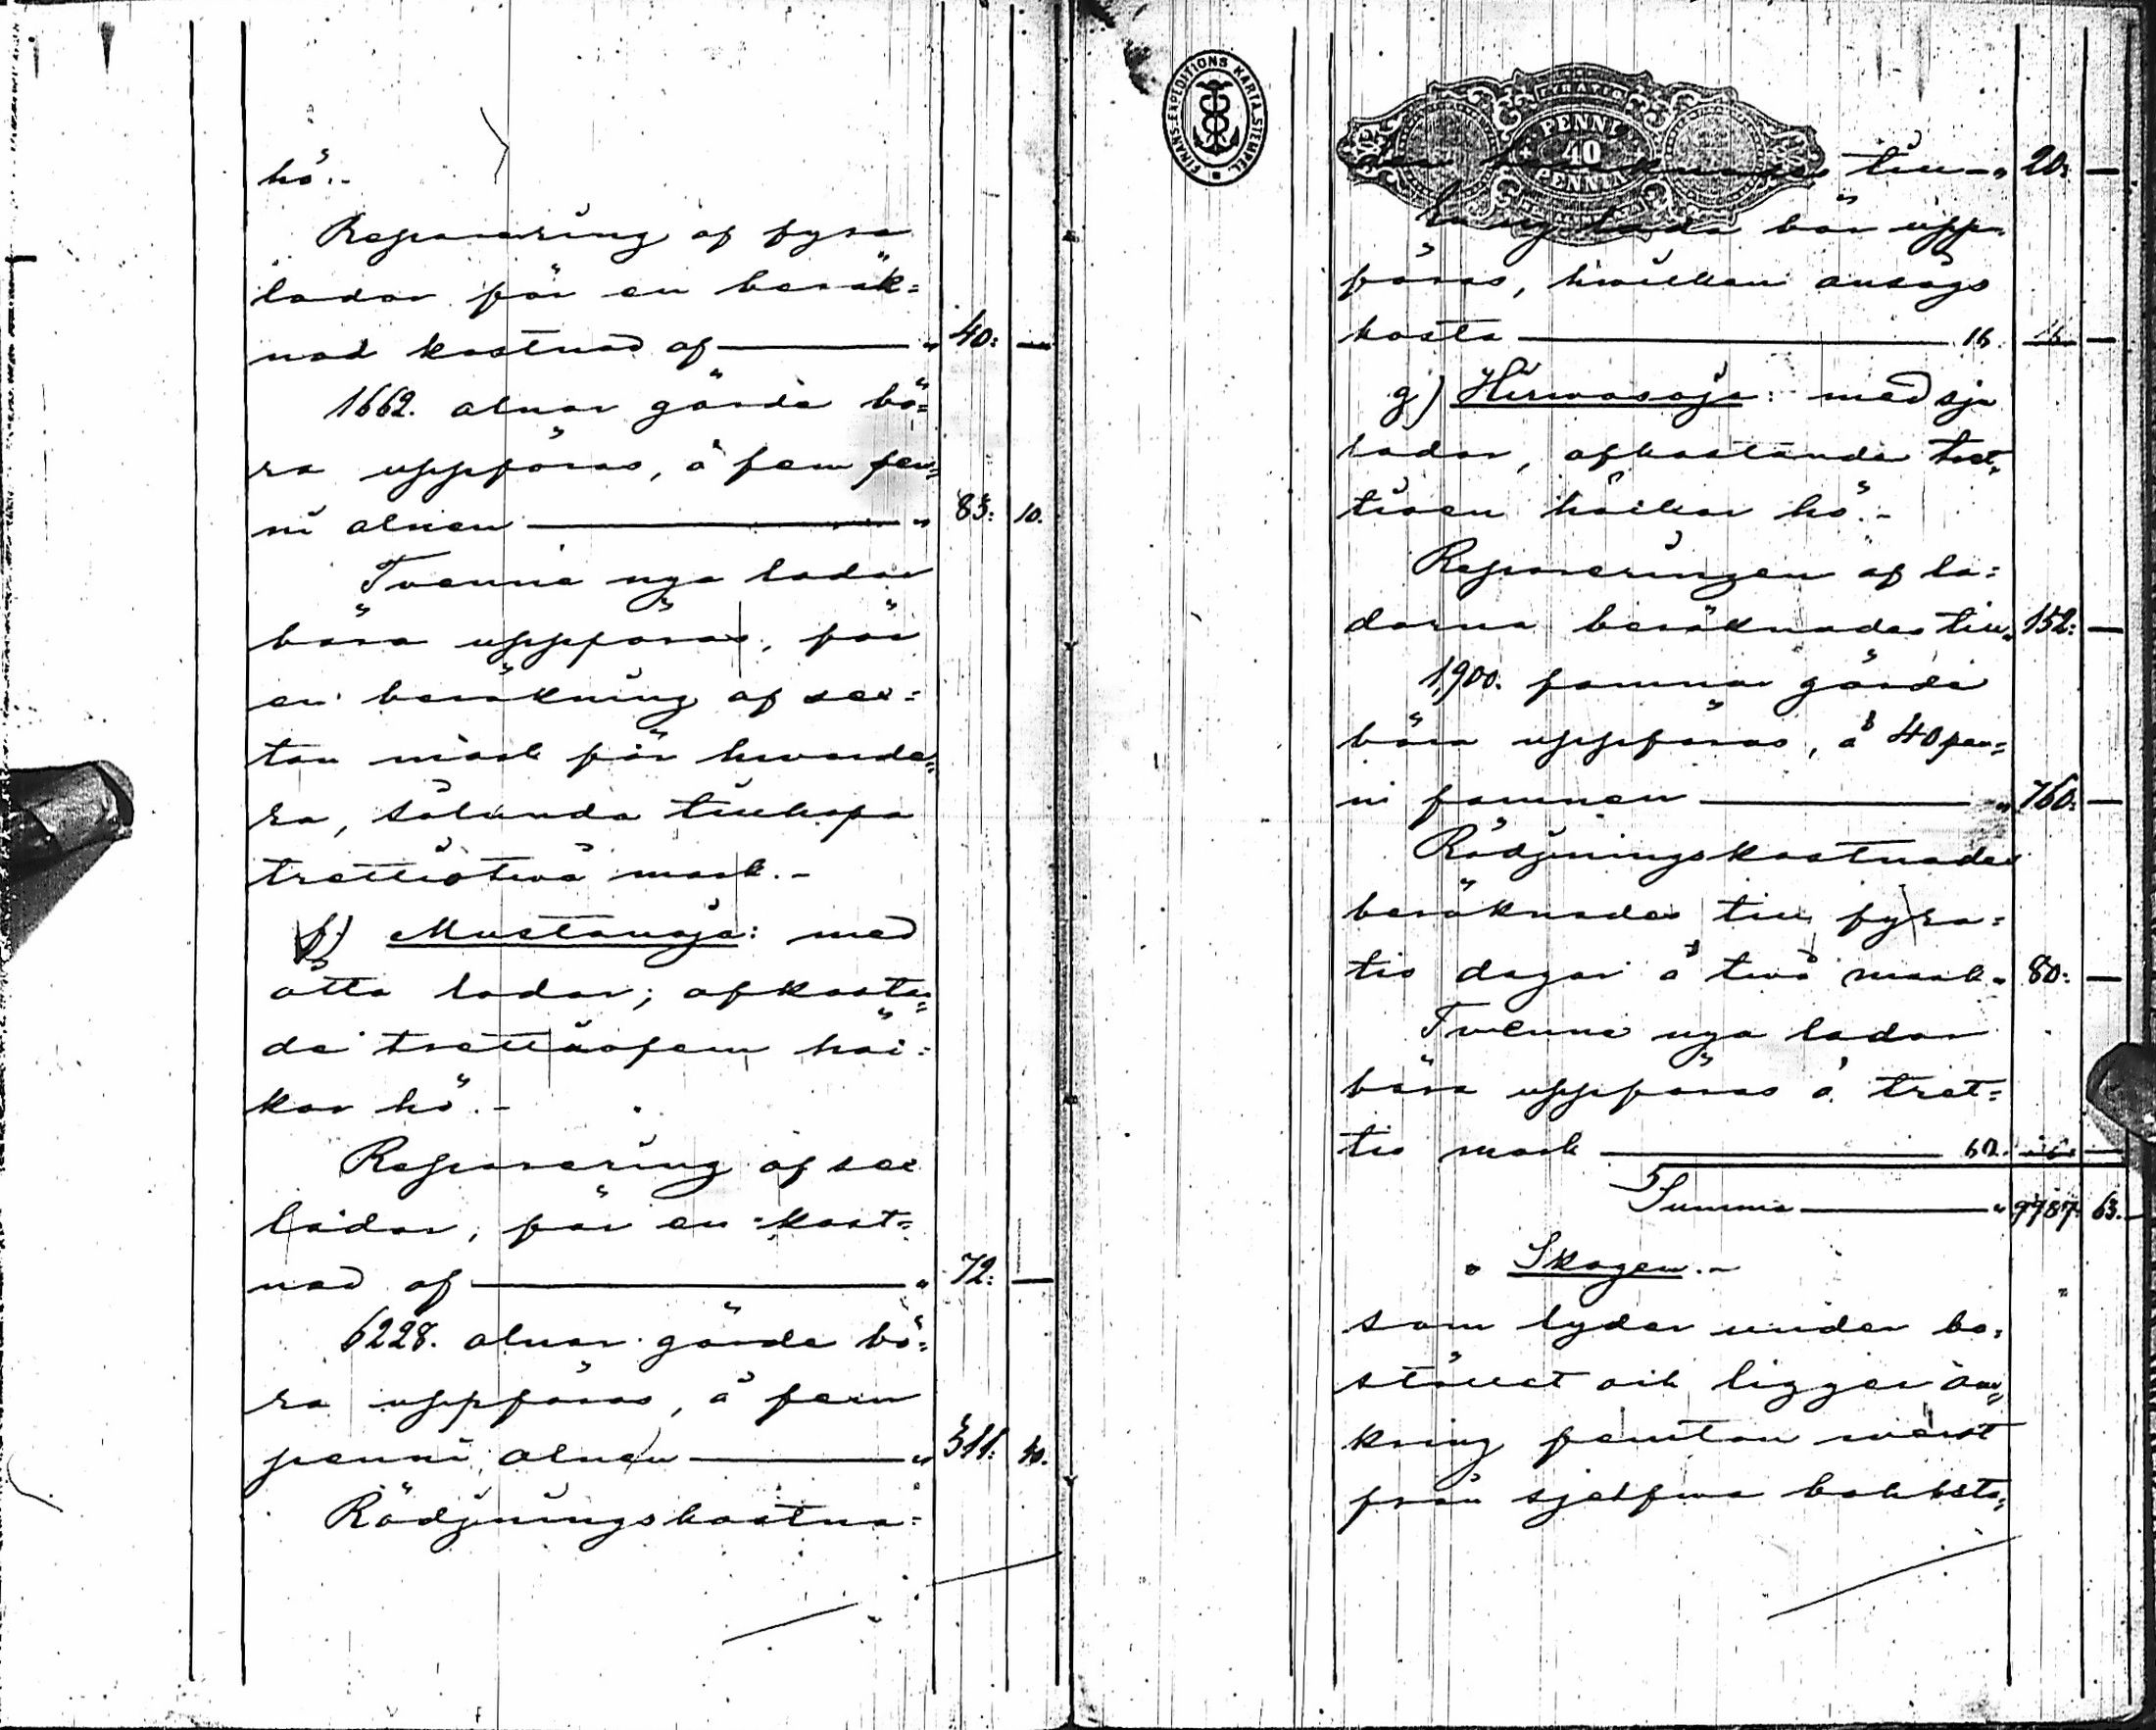 hö.-
Reparering af fyra
lador för en beräk=
nad kostnad af — " 40: —
1662. alnar gärde bö=
ra uppföras, à fem pen=
ni alnen — " 83: 10.
Tvenne nya lador
böra uppföras, för
en beräkning af sex=
ton mark för hvarde=
ra, sålunda tillhopa
trettiotvå mark.-
f) Mustanoja: med
åtta lador; afkastan=
de trettiofem häc=
kar hö.-
Reparering af sex
lador, för en kost=
nad af — " 72: —
6228. alnar gärde bö=
ra uppföras, à fem
penni alnen — " 311: 40.
Rödjningskostna=
FINANS-EXPEDITIONS KARTA STEMPEL
PENNI
40
PENNIÄ
den beräknades till — " 20: —
En ny lada bör upp=
föras, hvilken ansågs
kosta — 16. —
g) Hirvasoja: med sju
lador, afkastande tret=
tioen häckar hö.-
Repareringen af la=
dorna beräknades till " 152: —
1,900. famnar gärde
böra uppföras, à 40 pen=
ni famnen — " 760: —
Rödjningskostnaden
beräknades till fyra=
tio dagar à två mark " 80: —
Tvenne nya lador
böra uppföras à tret=
tio mark — 60. —
Summa — " 9987: 63.
Skogen.-
som lyder under bo=
stället och ligger om=
kring femton verst
från sjelfva bolsta=